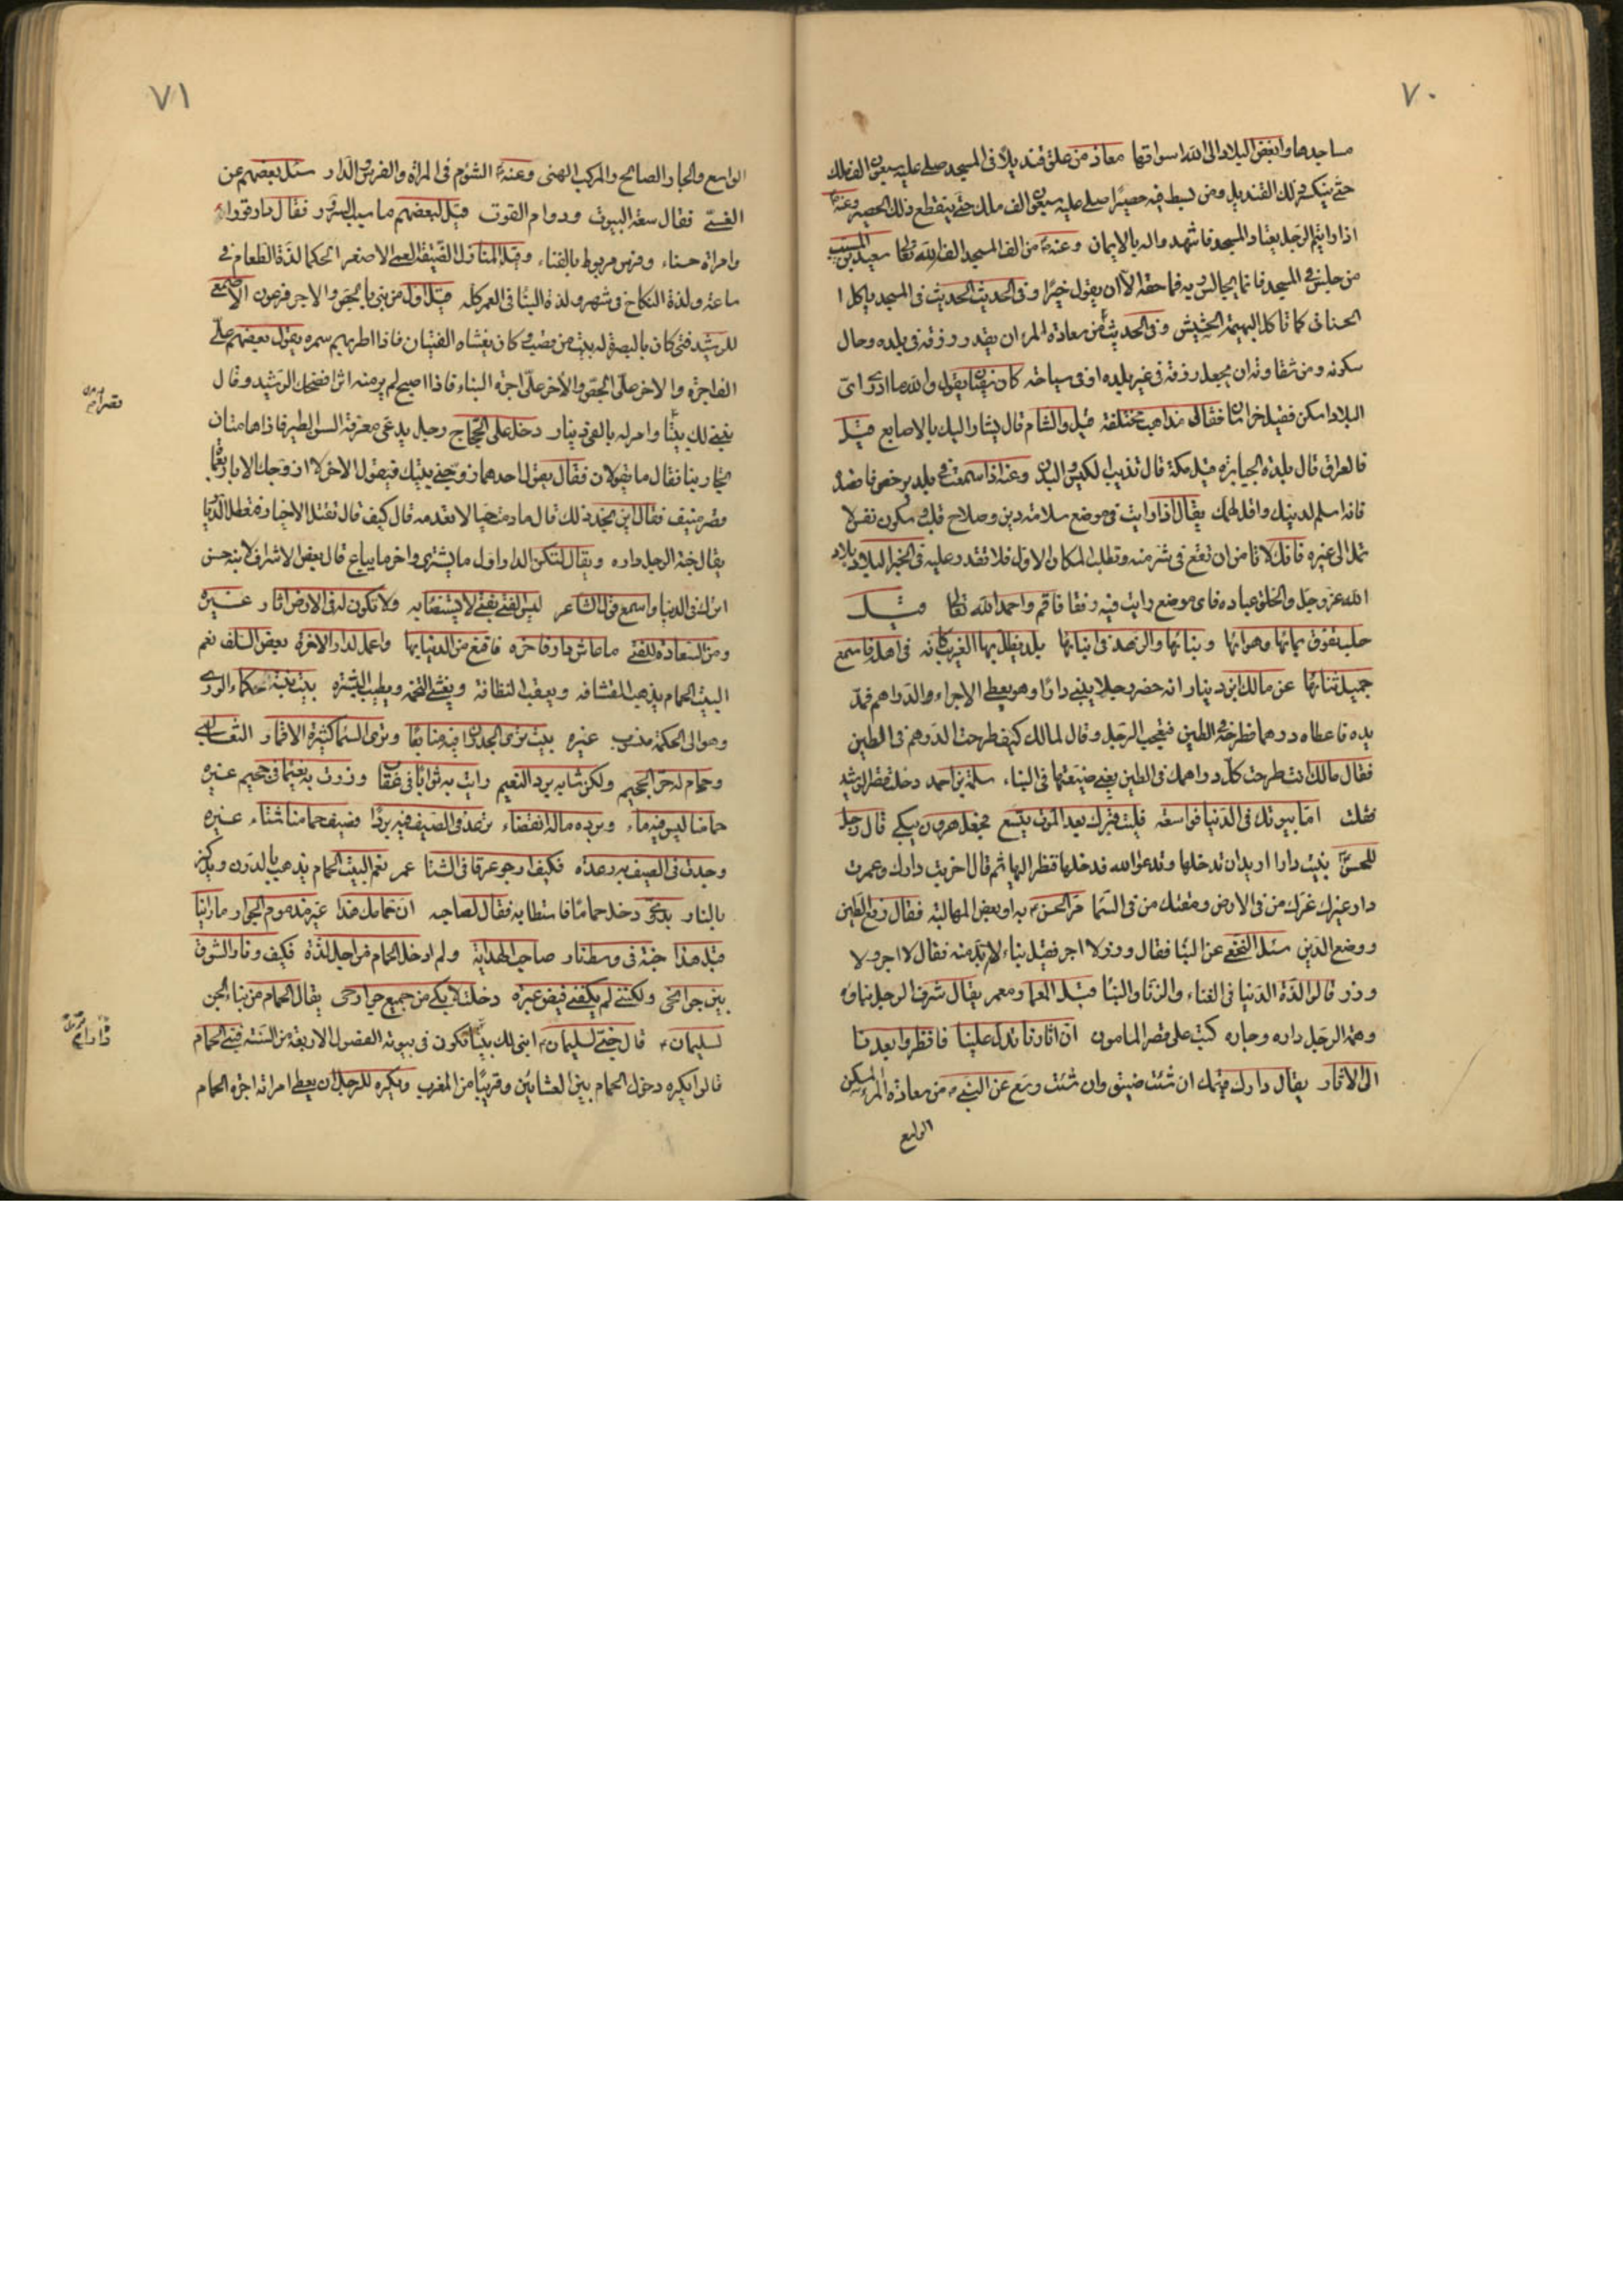 ٧٠
مساجدها وابغض البلاد الى الله اسواقها معاذ من علق قنديلًا فى المسجد صلى عليه سبعون الف ملك
حتى ينكسر ذلك القنديل ومن بسط فيه حصيرًا صلى عليه سبعون الف ملك حتى ينقطع ذلك الحصير وعنه
اذا رايتم الرجل يعتاد المسجد فاشهدوا له بالايمان وعنه من الف المسجد الفه الله تعالى سعيد بن المسيب
من جلس فى المسجد فانما يجالس ربه فما حقه الا ان يقول خيرًا وفى الحديث الحديث فى المسجد ياكل
الحسنات كما تاكل البهيمة الحشيش وفى الحديث من سعادة المرء ان يقدر رزقه فى بلده وحال
سكونه ومن شقاوته ان يجعل رزقه فى غير بلده او فى سياحته كان يقول والله ما ادرى اى
البلاد اسكن فقيل خراسان فقال مذاهب مختلفة قيل والشام قال يشار اليك بالاصابع قيل
فالعراق قال بلدة الجبابرة قيل مكة قال تذيب الكيس والبدن وعنه اذا سمعت فى بلد برخص فاقصده
فانه اسلم لدينك واقل لهمك يقال اذا رايت فى موضع سلامة دين وصلاح قلب وسكون نفس لا
تمل الى غيره فانك لا تامن ان تقع فى شر منه وتطلب المكان الاول فلا تقدر عليه فى الخبر البلاد بلاد
الله عز وجل والخلق عباده فاى موضع رايت فيه رفقا فاقم واحمد الله تعالى قيل
حلب تفوق بمائها وهوائها وبنائها والزهد فى ابنائها بلد يظل بها الغريب كانه فى اهله فاسمع
جميل ثنائها عن مالك ابن دينار انه حضر رجلا يبنى دارًا وهو يعطى الاجراء الدراهم فمد
يده فاعطاه درهما فطرحه فى الطين فتعجب الرجل وقال لمالك كيف طرحت الدرهم فى الطين
فقال مالك انت طرحت كل دراهمك فى الطين يعنى ضيعتها فى البناء سلمة بن احمد دخلت قصر الرشيد
فقلت اما بيوتك فى الدنيا فواسعة فليت قبرك بعد الموت يتسع فجعل هرون يبكى قال رجل
للحسن بنيت دارا اريد ان تدخلها وتدعو الله فدخلها فنظر اليها ثم قال اخربت دارك وعمرت
دار غيرك غرك من فى الارض ومقتك من فى السما مر الحسن بدار بعض المهالبة فقال رفع الطين
ووضع الدين سئل النخعى عن البنا فقال وزر ولا اجر فقيل بناء لا بد منه فقال لا اجر ولا
وزر قالوا لذة الدنيا فى الغناء والزنا والبنا يقال شرف الرجل بناؤه
وهمة الرجل داره وجاره كتب على قصر المامون ان اثارنا تدل علينا فانظروا بعدنا
الى الاثار يقال دارك قميصك ان شئت ضيق وان شئت وسع عن النبى من سعادة المرء المسكن
الواسع
٧١
الواسع والجار الصالح والمركب الهنى وعنه الشؤم فى المراة والفرس والدار سئل بعضهم عن
الغنى فقال سعة البيوت ودوام القوت قيل لبعضهم ما سبب السرور فقال دار قوراء
وامراة حسناء وفرس مربوط بالفناء وقيل المنازل الضيقة العمى الاصغر الحكما لذة الطعام فى
ساعة ولذة النكاح فى شهر ولذة البنا فى العمر كله قيل اول من بنى بالجص والاجر فرعون الاصمعى
للرشيد فتى كان بالبصرة له بيت من قصب وكان يغشاه الفتيان فاذا اطربهم سمره يقول بعضهم على
الف اجرة والاخر على الجص والاخر على اجرة البناء فاذا اصبح لم ير منه اثرا فضحك الرشيد وقال
نبنى لك بيتًا وامر له بالف دينار دخل على الحجاج رجل يدعى معرفة السن الطير فاذا هامتان
تتجاوبنا فقال ما تقولان فقال يقول احدهما زوجنى بنتك فيقول الاخر لا ازوجك الا باربعمائة
قصر منيف فقال اين يجد ذلك قال ما دمت حيا لا يعدمه قال كيف قال تقتل الاخيار فتعطل الديار
يقال جنة الرجل داره ويقال لتكن الدار اول ما يشترى واخر ما يباع قال بعض الاشراف لابنه حسن
اثرك فى الدنيا واسمع قول الشاعر ليس الفتى بفتى لا يستضا به ولا تكون له فى الارض اثار غيره
ومن السعادة للفتى ما عاش دار فاخره فاقنع من الدنيا بها واعمل لدار الاخرة بعض السلف نعم
البيت الحمام يذهب القشافة ويعقب النظافة ويفشى التخمة ويطيب البشرة بيت بنته حكماء الورى
وهو الى الحكمة منسوب غيره بيت ترى الجدران فيه منابعًا وترى السما كثيرة الاقمار الثعالبى
وحمام له حر الجحيم ولكن شابه برد النعيم رايت به ثوابًا فى عقاب وزرت به نعيما فى جحيم غيره
حمامنا ليس فيه ماء وبرده ماله انقضاء نرعد فى الصيف فيه بردًا وصيف حمامنا شتاء غيره
وجدت فى الصيف به رعدة فكيف ارجو عرقا فى الشتا عمر نعم البيت الحمام يذهب بالدرن ويذكر
بالنار بدوى دخل حمامًا فاستطابه فقال لصاحبه ان حمامك هذا غير مذموم الجوار ما راينا
قبل هذا جنة فى وسط نار صاحب الهداية ولم ادخل الحمام من اجل لذة فكيف ونار الشوق
بين جوانحى ولكننى لم يكفنى فيض عبرتى دخلت لابكى من جميع جوارحى يقال الحمام من بناء الجن
لسليمان قال جنى لسليمان ابنى لك بيتًا تكون فى بيوته الفصول الاربعة من السنة فبنى الحمام
قالوا يكره دخول الحمام بين العشائين وقريبًا من المغرب ويكره للرجل ان يعطى امراته اجرة الحمام